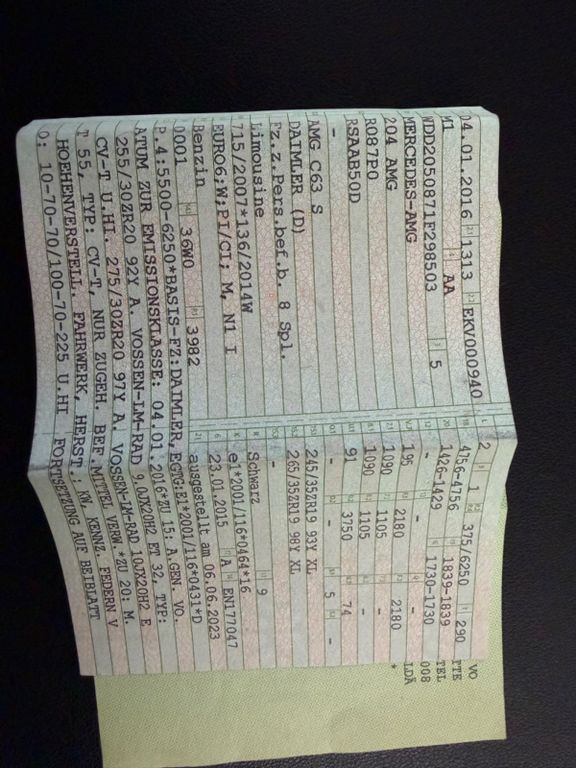 04.01.2016 1313 EKV000940
M1 AA
WDD2050871F298503 5
MERCEDES-AMG
204 AMG
R087P0
RSAAB50D
-
AMG C63 S
DAIMLER (D)
Fz.z.Pers.bef.b. 8 Spl.
Limousine
715/2007*136/2014W
EURO6;W;PI/CI; M, N1 I
Benzin
0001 36W0 3982
L 2 9 1 P.2 P.4 375/6250 T 290
18 4756-4756 19 1839-1839
20 1426-1429 G 1730-1730
- - -
195 2180 2180
1090 1105 -
1090 1105 -
91 3750 74
- - 5 -
245/35ZR19 93Y XL
265/35ZR19 98Y XL
-
R Schwarz 11 9
K e1*2001/116*0464*16
6 23.01.2015 17 A 16 EN177047
21 ausgestellt am 06.06.2023
P.4:5500-6250*BASIS-FZ:DAIMLER,EGTG:E1*2001/116*0431*D
ATUM ZUR EMISSIONSKLASSE: 04.01.2016*ZU 15: A.GEN. VO.
255/30ZR20 92Y A. VOSSEN-LM-RAD 9,0JX20H2 ET 32, TYP:
CV-T U.HI. 275/30ZR20 97Y A. VOSSEN-LM-RAD 10JX20H2 E
T 55, TYP: CV-T, NUR ZUGEH. BEF.MITTEL VERW.*ZU 20: M.
HOEHENVERSTELL. FAHRWERK, HERST.: KW, KENNZ. FEDERN V
O: 10-70-70/100-70-225 U.HI FORTSETZUNG AUF BEIBLATT
VO
TTE
TEL
008
LDÄ
*